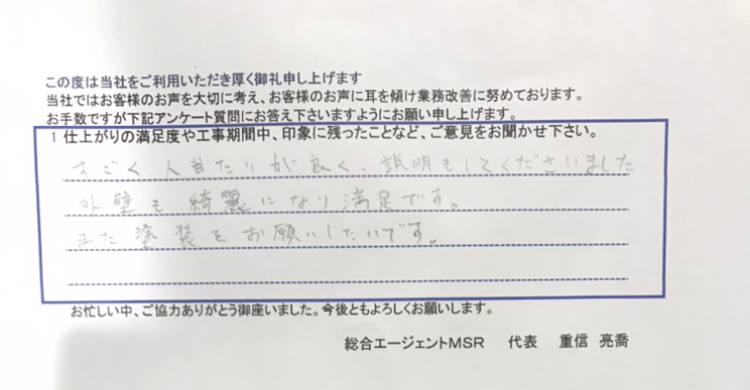 この度は当社をご利用いただき厚く御礼申し上げます
当社ではお客様のお声を大切に考え、お客様のお声に耳を傾け業務改善に努めております。
お手数ですが下記アンケート質問にお答え下さいますようにお願い申し上げます。
1 仕上がりの満足度や工事期間中、印象に残ったことなど、ご意見をお聞かせ下さい。
すごく人当たりが良く、説明もしてくださいました
外壁も綺麗になり満足です。
また塗装をお願いしたいです。
お忙しい中、ご協力ありがとう御座いました。今後ともよろしくお願いします。
総合エージェントMSR 代表 重信 亮喬